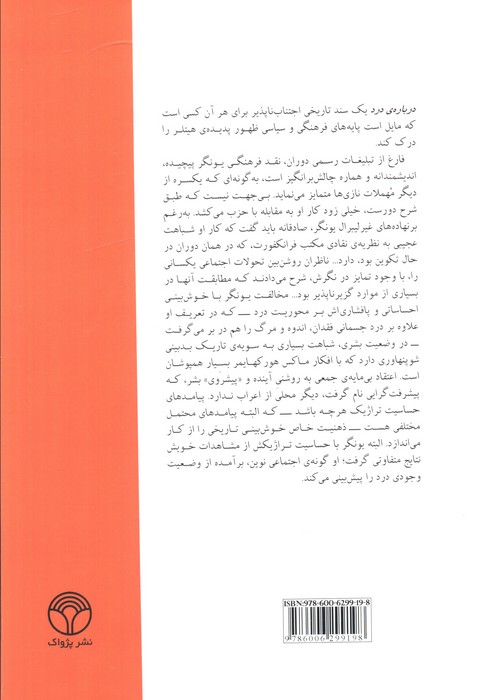 درباره‌ی درد یک سند تاریخی اجتناب‌ناپذیر برای هر آن کسی است
که مایل است پایه‌های فرهنگی و سیاسی ظهور پدیده‌ی هیتلر را
درک کند.
فارغ از تبلیغات رسمی دوران، نقد فرهنگی یونگر پیچیده،
اندیشمندانه و هماره چالش‌برانگیز است، به‌گونه‌ای که یکسره از
دیگر مُهملات نازی‌ها متمایز می‌نماید. بی‌جهت نیست که طبق
شرح دورست، خیلی زود کار او به مقابله با حزب می‌کشد. به‌رغم
برنهاده‌های غیرلیبرال یونگر، صادقانه باید گفت که کار او شباهت
عجیبی به نظریه‌ی نقادی مکتب فرانکفورت، که در همان دوران در
حال تکوین بود، دارد... ناظران روشن‌بین تحولات اجتماعی یکسانی
را، با وجود تمایز در نگرش، شرح می‌دادند که مطابقت آنها در
بسیاری از موارد گزیرناپذیر بود... مخالفت یونگر با خوش‌بینی
احساساتی و پافشاری‌اش بر محوریت درد ـــ که در تعریف او
علاوه بر درد جسمانی فقدان، اندوه و مرگ را هم در بر می‌گرفت
ـــ در وضعیت بشری، شباهت بسیاری به سویه‌ی تاریک بدبینی
شوپنهاوری دارد که با افکار ماکس هورکهایمر بسیار همپوشان
است. اعتقاد بی‌مایه‌ی جمعی به روشنی آینده و «پیشروی» بشر، که
پیشرفت‌گرایی نام گرفت، دیگر محلی از اعراب ندارد. پیامدهای
حساسیت تراژیک هرچه باشد ـــ که البته پیامدهای محتمل
مختلفی هست ـــ ذهنیت خاص خوش‌بینی تاریخی را از کار
می‌اندازد. البته یونگر با حساسیت تراژیکش از مشاهدات خویش
نتایج متفاوتی گرفت؛ او گونه‌ی اجتماعی نوین، برآمده از وضعیت
وجودی درد را پیش‌بینی می‌کند.
ISBN:978-600-6299-19-8
9 786006 299198
نشر پژواک